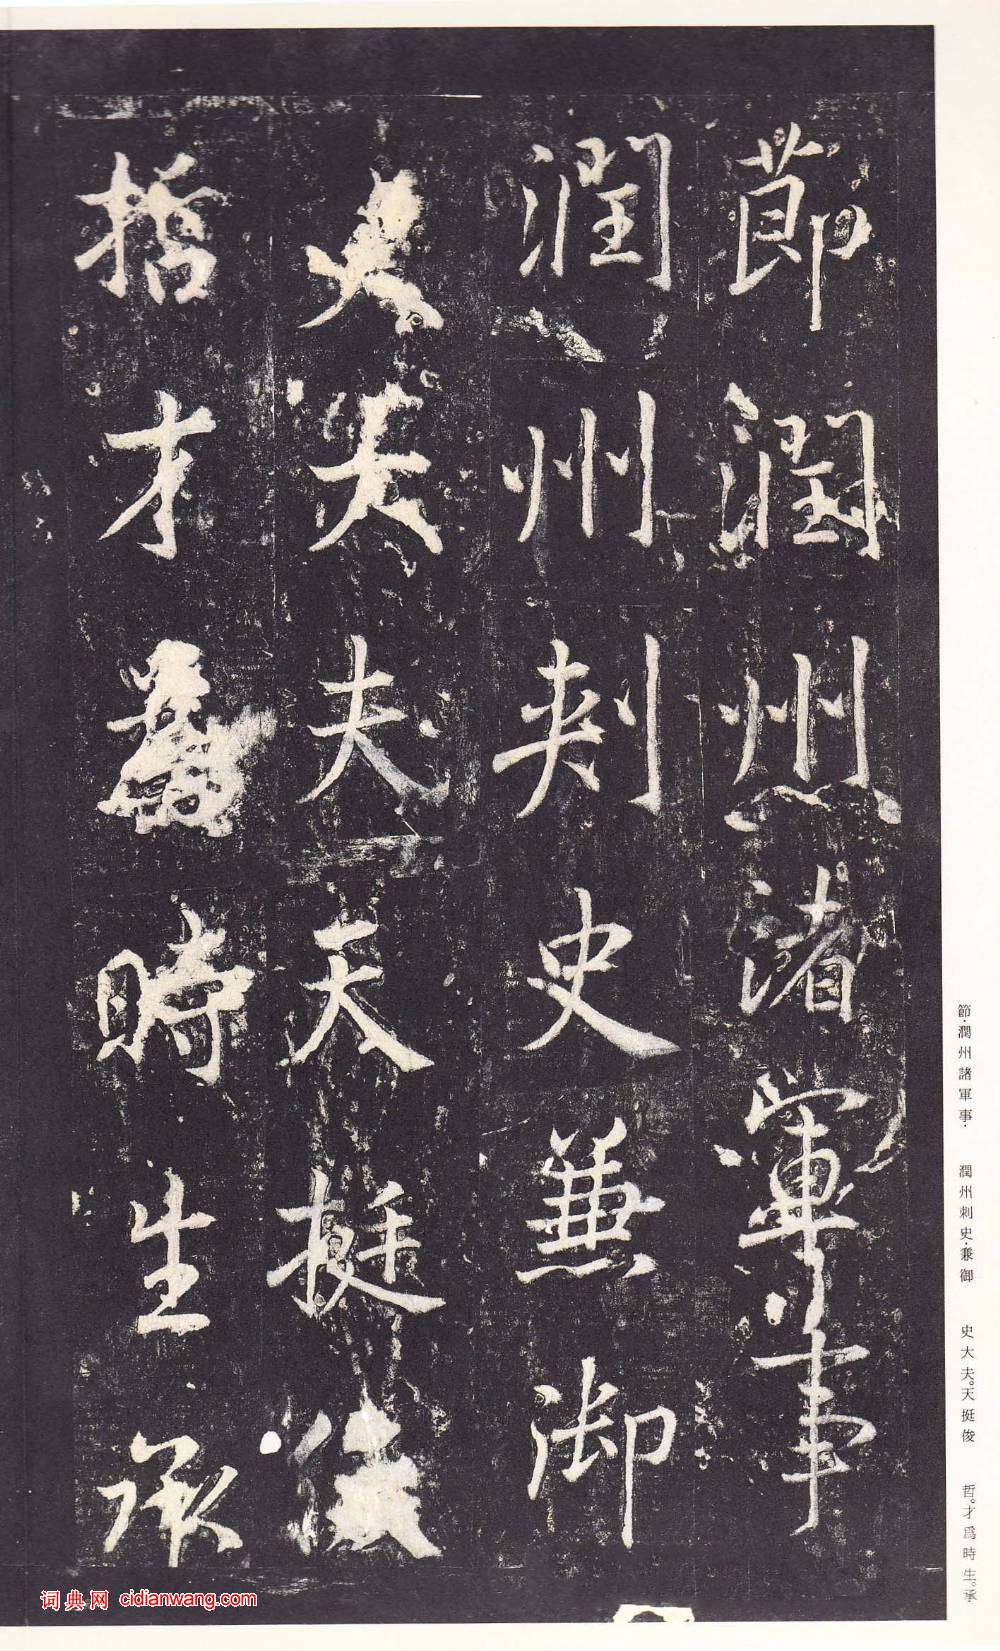 節潤州諸軍事
潤州刺史兼御
史大夫天挺俊
哲才為時生承
節·潤州諸軍事· 潤州刺史·兼御 史大夫。天挺俊 哲。才爲時生。承
词典网 cidianwang.com